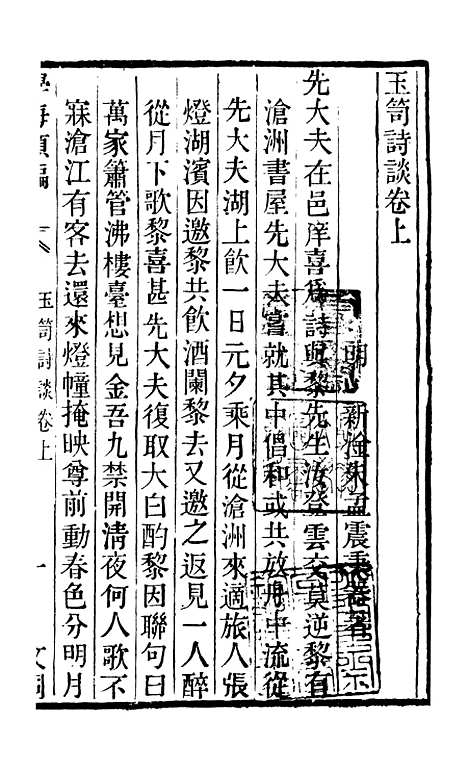 玉笥詩談卷上
明　新淦朱孟震秉器著
先大夫在邑庠喜爲詩與黎先生汝登雲交莫逆黎有
滄洲書屋先大夫嘗就其中倡和或共放舟中流從
先大夫湖上飲一日元夕乘月從滄洲來適旅人張
燈湖濱因邀黎共飲酒闌黎去又邀之返見一人醉
從月下歌黎喜甚先大夫復取大白酌黎因聯句曰
萬家簫管沸樓臺想見金吾九禁開清夜何人歌不
寐滄江有客去還來燈幢掩映尊前動春色分明月
學海類編　玉笥詩談卷上　一